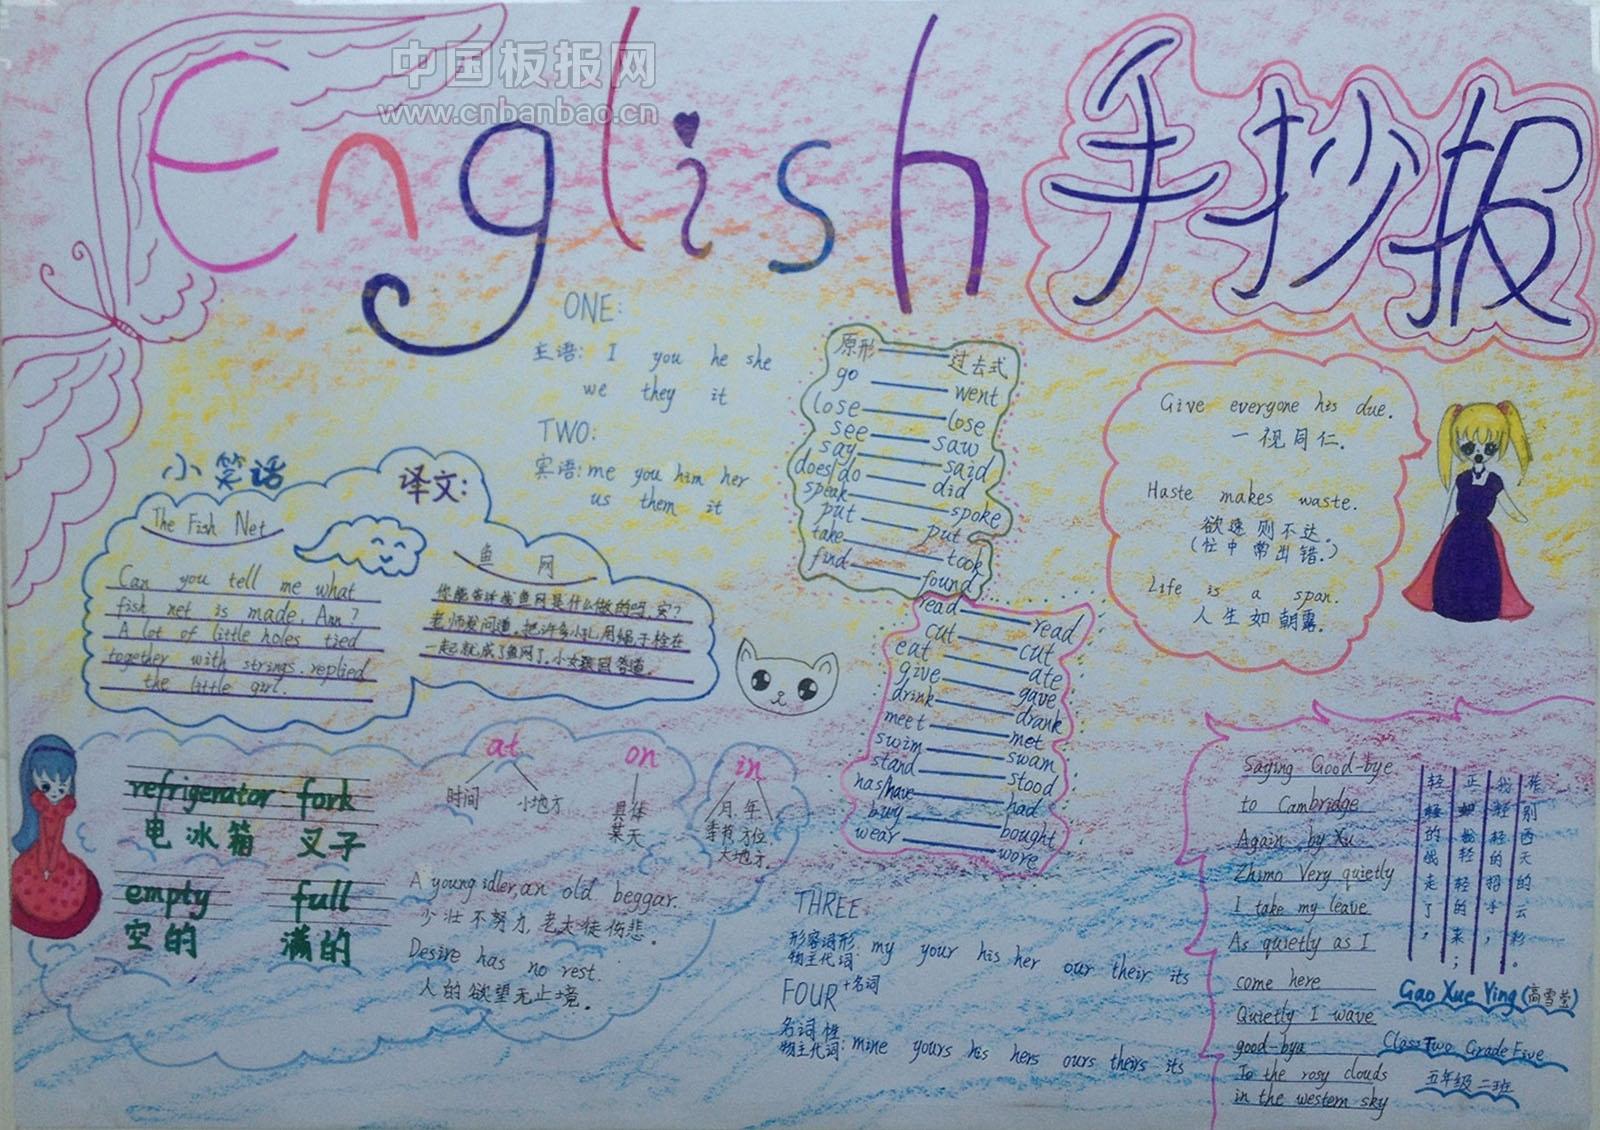 中国板报网
www.cnbanbao.cn
English 手抄报
ONE:
主语: I you he she
we they it
TWO:
宾语: me you him her
us them it
原形 过去式
go went
lose lose
see saw
say said
does/do did
speak spoke
put put
take took
find found
read read
cut cut
eat ate
give gave
drink drank
meet met
swim swam
stand stood
has/have had
buy bought
wear wore
Give everyone his due.
一视同仁.
Haste makes waste.
欲速则不达.
(忙中常出错.)
Life is a span.
人生如朝露.
小笑话
The Fish Net
Can you tell me what
fish net is made, Ann?
A lot of little holes tied
together with strings. replied
the little girl.
译文:
鱼网
你能告诉我鱼网是什么做的吗,安?
老师发问道。把许多小孔用绳子栓在
一起就成了鱼网了。小女孩回答道.
refrigerator fork
电冰箱 叉子
empty full
空的 满的
at
时间 小地方
on
具体
某天
in
月 年
季节 方位
大地方.
A young idler, an old beggar.
少壮不努力,老大徒伤悲。
Desire has no rest.
人的欲望无止境。
THREE
形容词形
物主代词: my your his her our their its
+名词
FOUR
名词性
物主代词: mine yours his hers ours theirs its
Saying Good-bye
to Cambridge
Again by Xu
Zhimo Very quietly
I take my leave
As quietly as I
come here
Quietly I wave
good-bya
To the rosy clouds
in the western sky
轻轻的我走了,
正如我轻轻的来;
我轻轻的招手,
作别西天的云彩。
Gao Xue Ying (高雪莹)
Class Two Grade Five
五年级二班